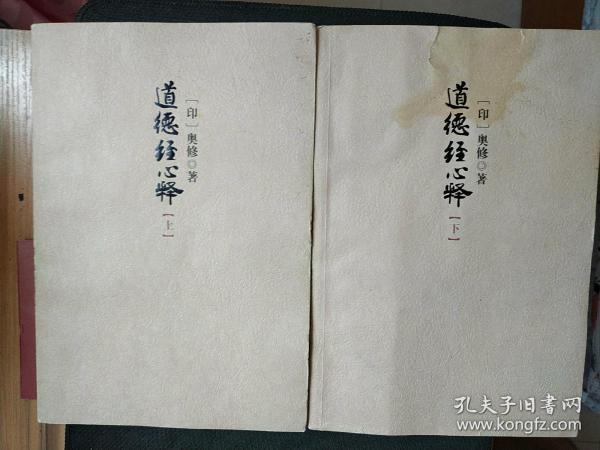 道德经心释
【上】
［印］奥修◎著
道德经心释
【下】
［印］奥修◎著
孔夫子旧书网
www.kongfz.com